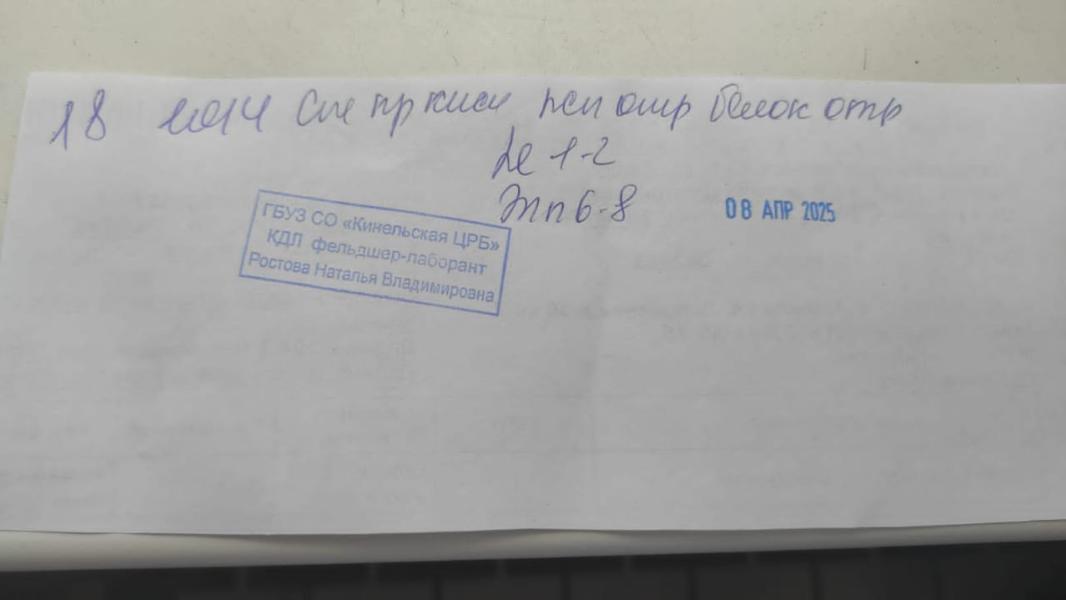 18 1014 С/ж пр кисл псп отр белок отр
Le 1-2
Эпп 6-8
08 АПР 2025
ГБУЗ СО «Кинельская ЦРБ»
КДЛ фельдшер-лаборант
Ростова Наталья Владимировна